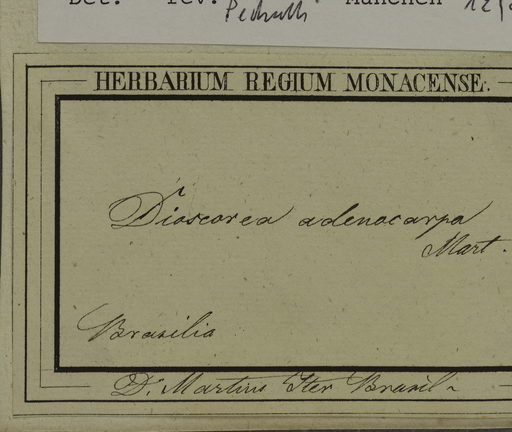 Det. rev. München 12
HERBARIUM REGIUM MONACENSE.
Dioscorea adenocarpa
Mart.
Brasilia
D. Martius Iter Brasil.